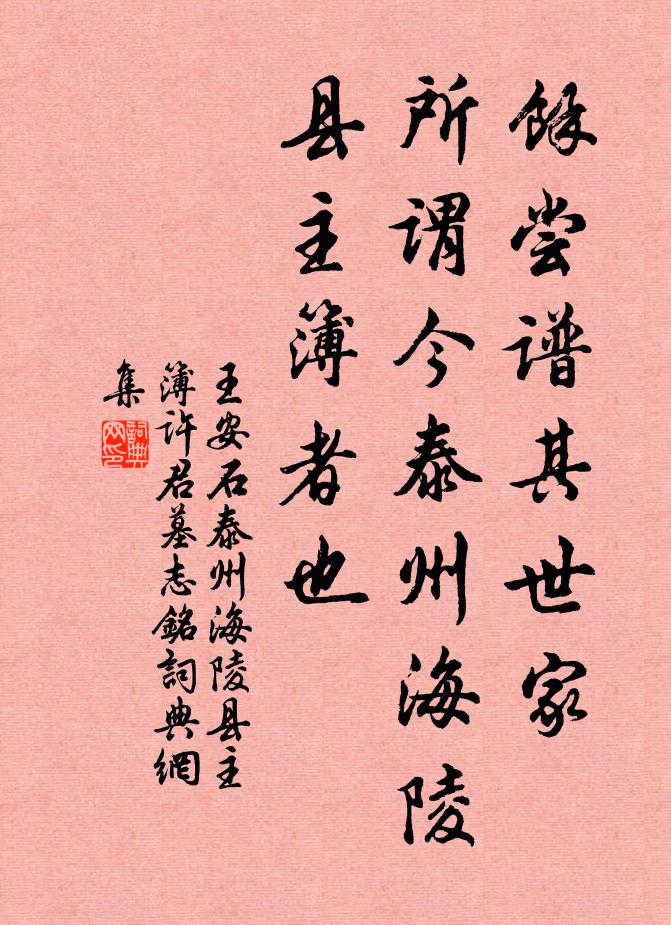 馀尝谱其世家
所谓今泰州海陵
县主簿者也
王安石泰州海陵县主
簿许君墓志銘詞典網
集
詞典
网印